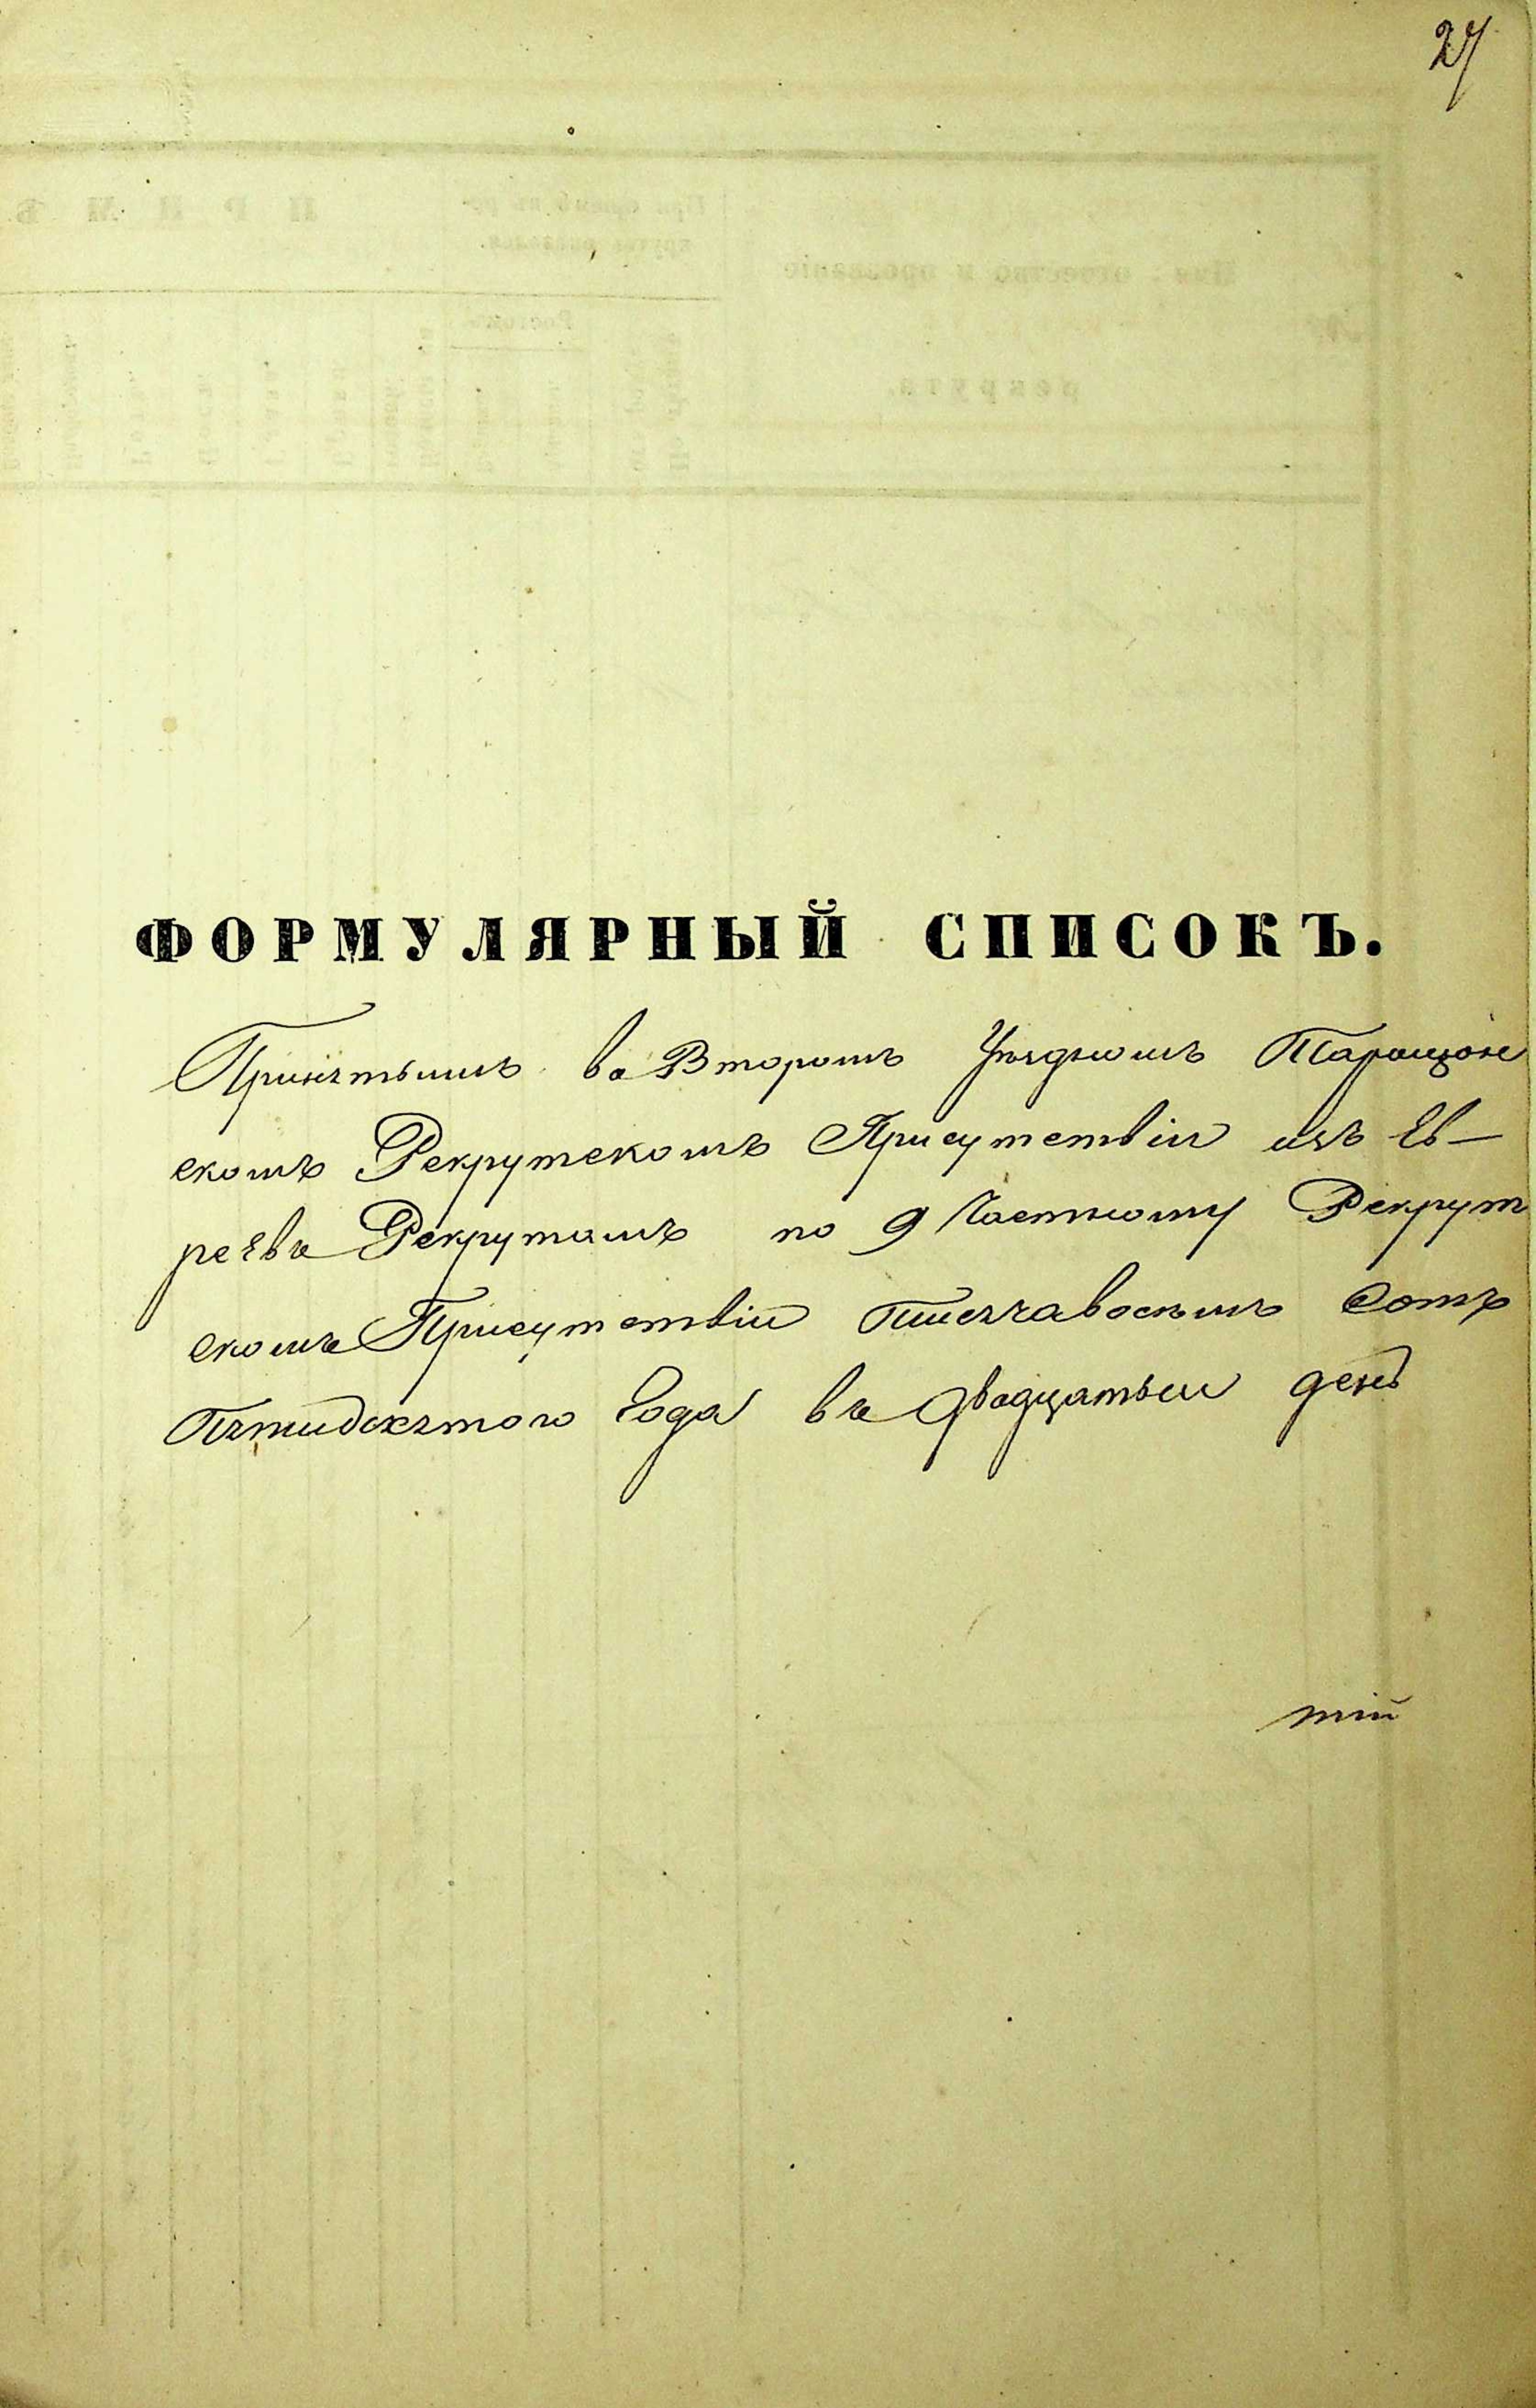 27
ФОРМУЛЯРНЫЙ СПИСОКЪ.
Принятымъ во Второмъ Уѣздномъ Таращан
скомъ Рекрутскомъ Присутствіи изъ Ев-
реевъ Рекрутамъ по 9 Частному Рекрут
скомъ Присутствіи Тысячавосемъ Сотъ
Пятидесятого Года въ Двадцатый день
тій